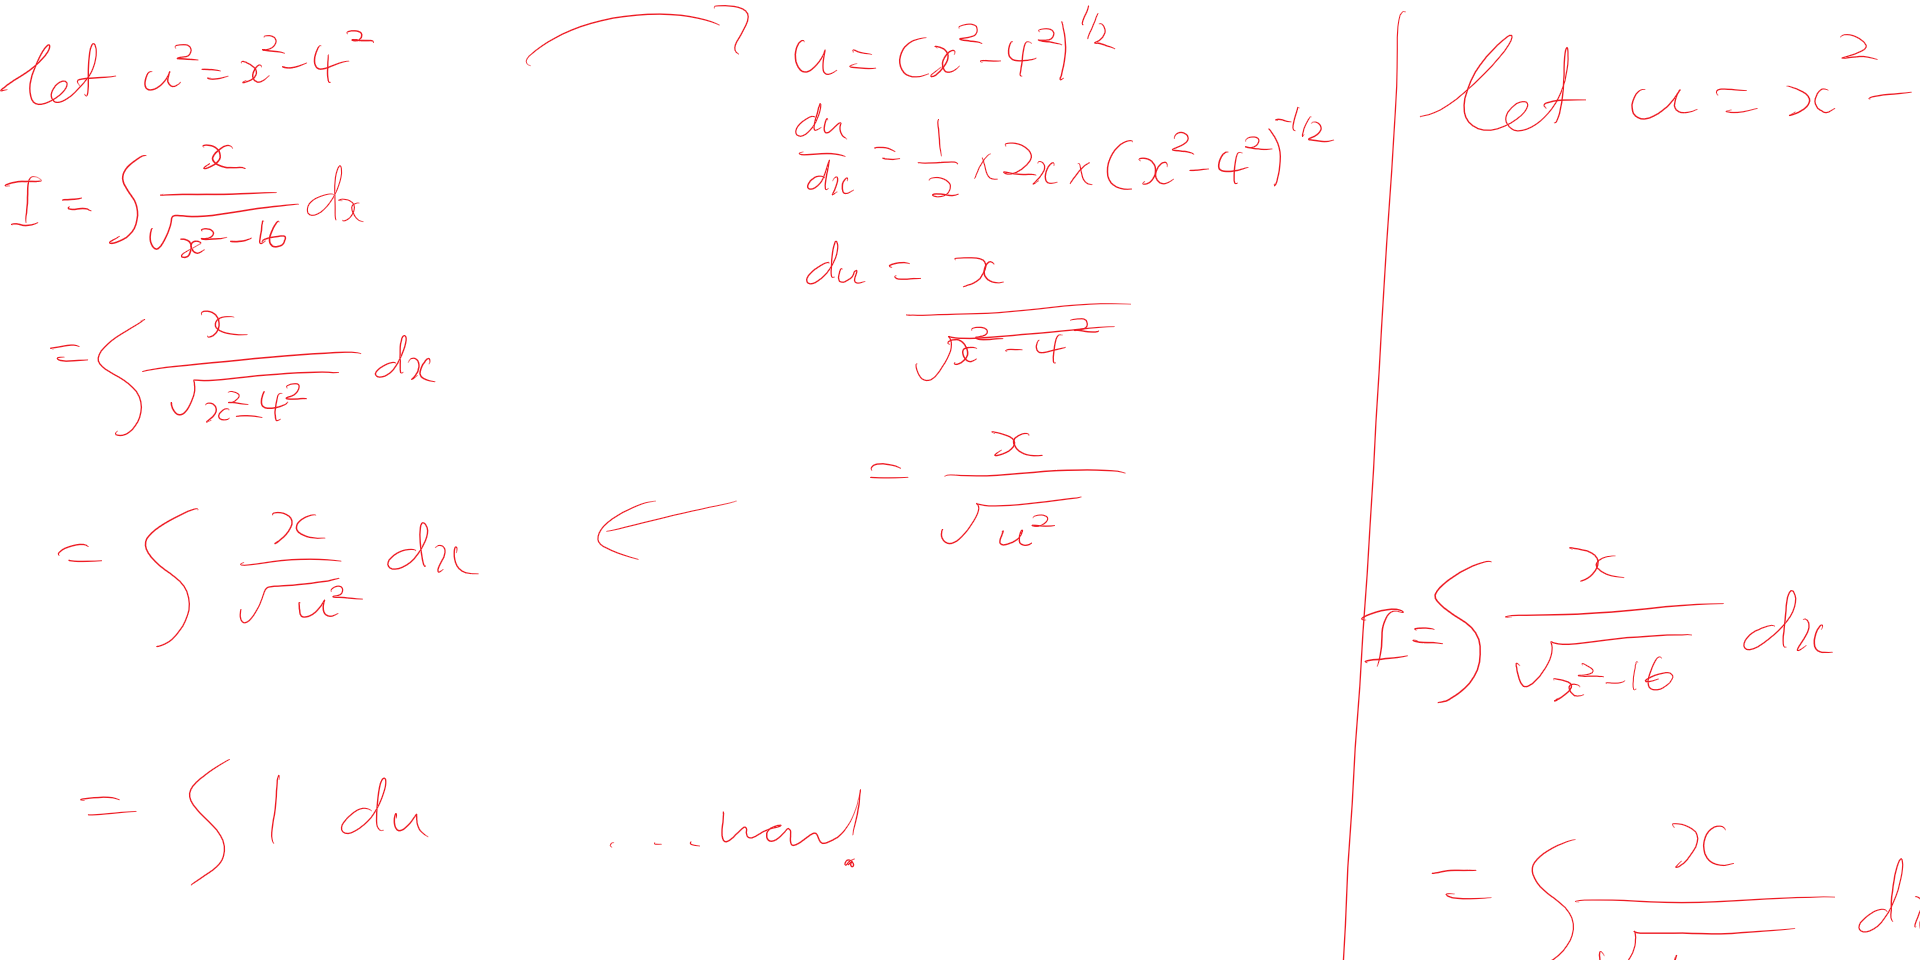 let u² = x² - 4²
I = ∫ x/√(x² - 16) dx
= ∫ x/√(x² - 4²) dx
= ∫ x/√(u²) dx
= ∫ 1 du ...
u = (x² - 4²)^1/2
du/dx = 1/2 × 2x × (x² - 4²)^-1/2
du = x/√(x² - 4²)
= x/√(u²)
let u = x² -
I = ∫ x/√(x² - 16) dx
= ∫ x/√ d